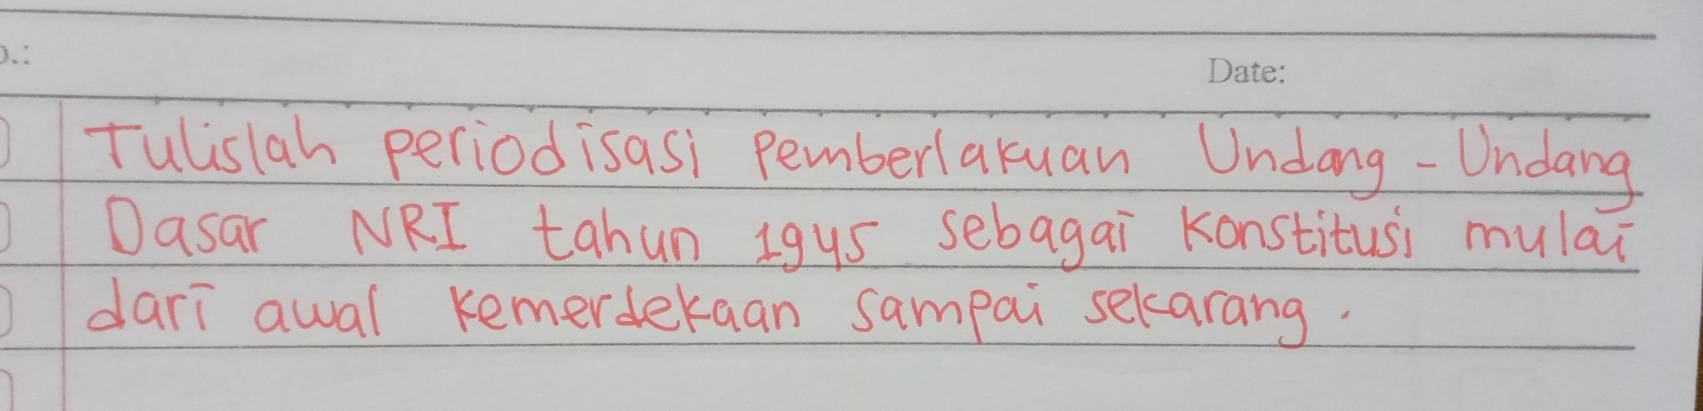 Date:
Tulislah periodisasi Pemberlakuan Undang - Undang
Dasar NRI tahun 1945 sebagai Konstitusi mulai
dari awal Kemerdekaan sampai sekarang.